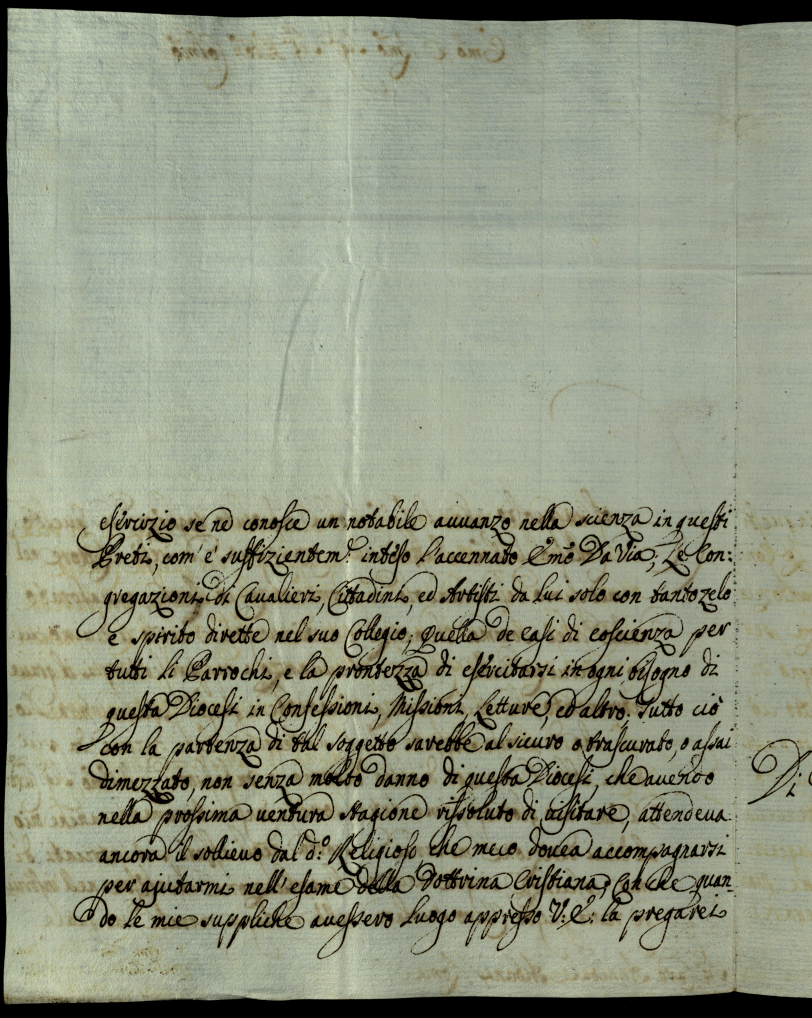 esercizio se ne conosce un notabile auuanzo nella scienza in questi
Preti, com' e' suffizientem.te inteso l'accennato Emo Da Via; Le Con:
gregazioni di Caualieri, Cittadini, ed Artisti da lui solo con tanto zelo
e spirito dirette nel suo Collegio; quella de casi di coscienza per
tutti li Parrochi, e la prontezza di esercitarsi in ogni bisogno di
questa Diocesi in Confessioni, Missioni, Letture, ed altro. Tutto ciò
con la partenza di tal soggetto sarebbe al sicuro o trascurato, o assai
dimezzato, non senza molto danno di questa Diocesi, che auendo
nella prossima uentura stagione rissoluto di uisitare, attendeua
ancora il sollieuo dal d.o Religioso che meco douea accompagnarsi
per ajutarmi nell' esame della Dottrina Cristiana; Con che quan-
do le mie suppliche auessero luogo appresso V: E: la pregarei
Di